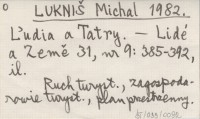 o LUKNIŠ Michal 1982.
Ľudia a Tatry. — Lidé
a Země 31, nr 9: 385-392,
il.
Ruch turyst., zagospoda-
rowie turyst., plan przestrzenny.